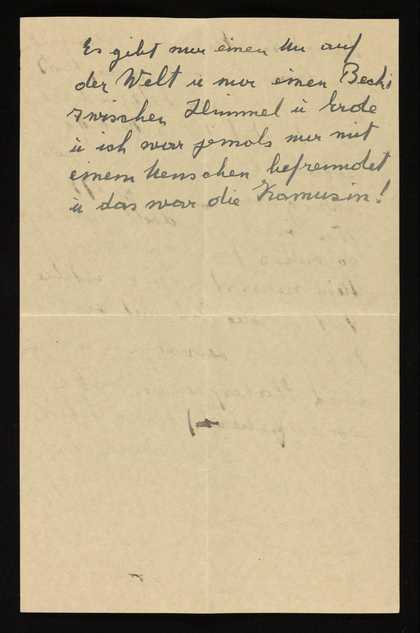 Es gibt nur einen Mu auf
der Welt u nur einen Bechi
zwischen Himmel u Erde
u ich war jemals nur mit
einem Menschen befreundet
u das war die Kamusin!